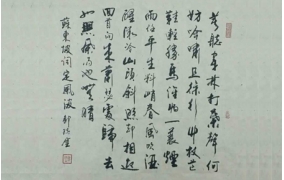 莫聽穿林打葉聲何
妨吟嘯且徐行竹杖芒
鞋輕勝馬誰怕一蓑煙
雨任平生料峭春風吹酒
醒微冷山頭斜照却相迎
回首向來蕭瑟處歸去
也無風雨也無晴
蘇東坡詞定風波